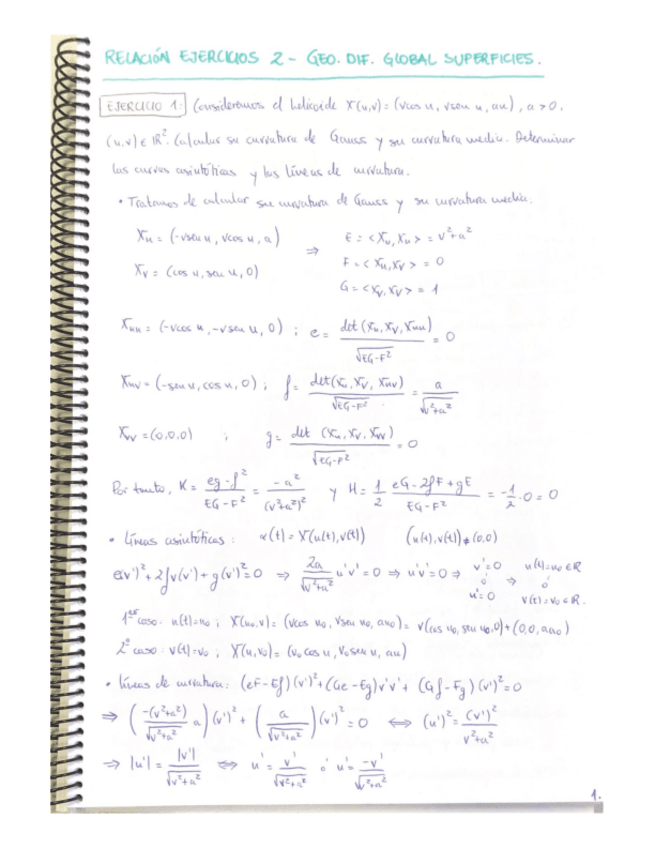 RELACIÓN EJERCICIOS 2 - GEO. DIF. GLOBAL SUPERFICIES.
EJERCICIO 1: Consideramos el helicoide X(u,v)=(vcos u, vsen u, au), a>0,
(u,v)∈ℝ². Calcular su curvatura de Gauss y su curvatura media. Determinar
las curvas asintóticas y las líneas de curvatura.
• Tratamos de calcular su curvatura de Gauss y su curvatura media.
Xu = (-vsen u, vcos u, a) ⇒ E = <Xu, Xu> = v²+a²
Xv = (cos u, sen u, 0) F = <Xu, Xv> = 0
G = <Xv, Xv> = 1
Xuu = (-vcos u, -vsen u, 0) ; e = det(Xu, Xv, Xuu)/√(EG-F²) = 0
Xuv = (-sen u, cos u, 0) ; f = det(Xu, Xv, Xuv)/√(EG-F²) = a/√(v²+a²)
Xvv = (0,0,0) ; g = det (Xu, Xv, Xvv)/√(EG-F²) = 0
Por tanto, K = (eg-f²)/(EG-F²) = -a²/(v²+a²)² y H = 1/2 (eG-2fF+gE)/(EG-F²) = -1/2·0 = 0
• Líneas asintóticas: α(t) = X(u(t), v(t)) (u(t), v(t)) ≠ (0,0)
e(u')²+2fu'(v')+g(v')²=0 ⇒ 2a/√(v²+a²) u'v'=0 ⇒ u'v'=0 ⇒ v'=0 ó u'=0 ⇒ u(t)=u₀∈ℝ ó v(t)=v₀∈ℝ.
1er caso: u(t)=u₀ ; X(u₀,v) = (vcos u₀, vsen u₀, au₀) = v(cos u₀, sen u₀, 0)+(0,0,au₀)
2º caso: v(t)=v₀ ; X(u,v₀) = (v₀cos u, v₀sen u, au)
• Líneas de curvatura: (eF-Ef)(u')²+(Ge-Eg)u'v'+(Gf-Fg)(v')²=0
⇒ (-(v²+a²)/√(v²+a²) a)(u')² + (a/√(v²+a²))(v')² = 0 ⇔ (u')² = (v')²/(v²+a²)
⇒ |u'| = |v'|/√(v²+a²) ⇔ u' = v'/√(v²+a²) ó u' = -v'/√(v²+a²)
1.